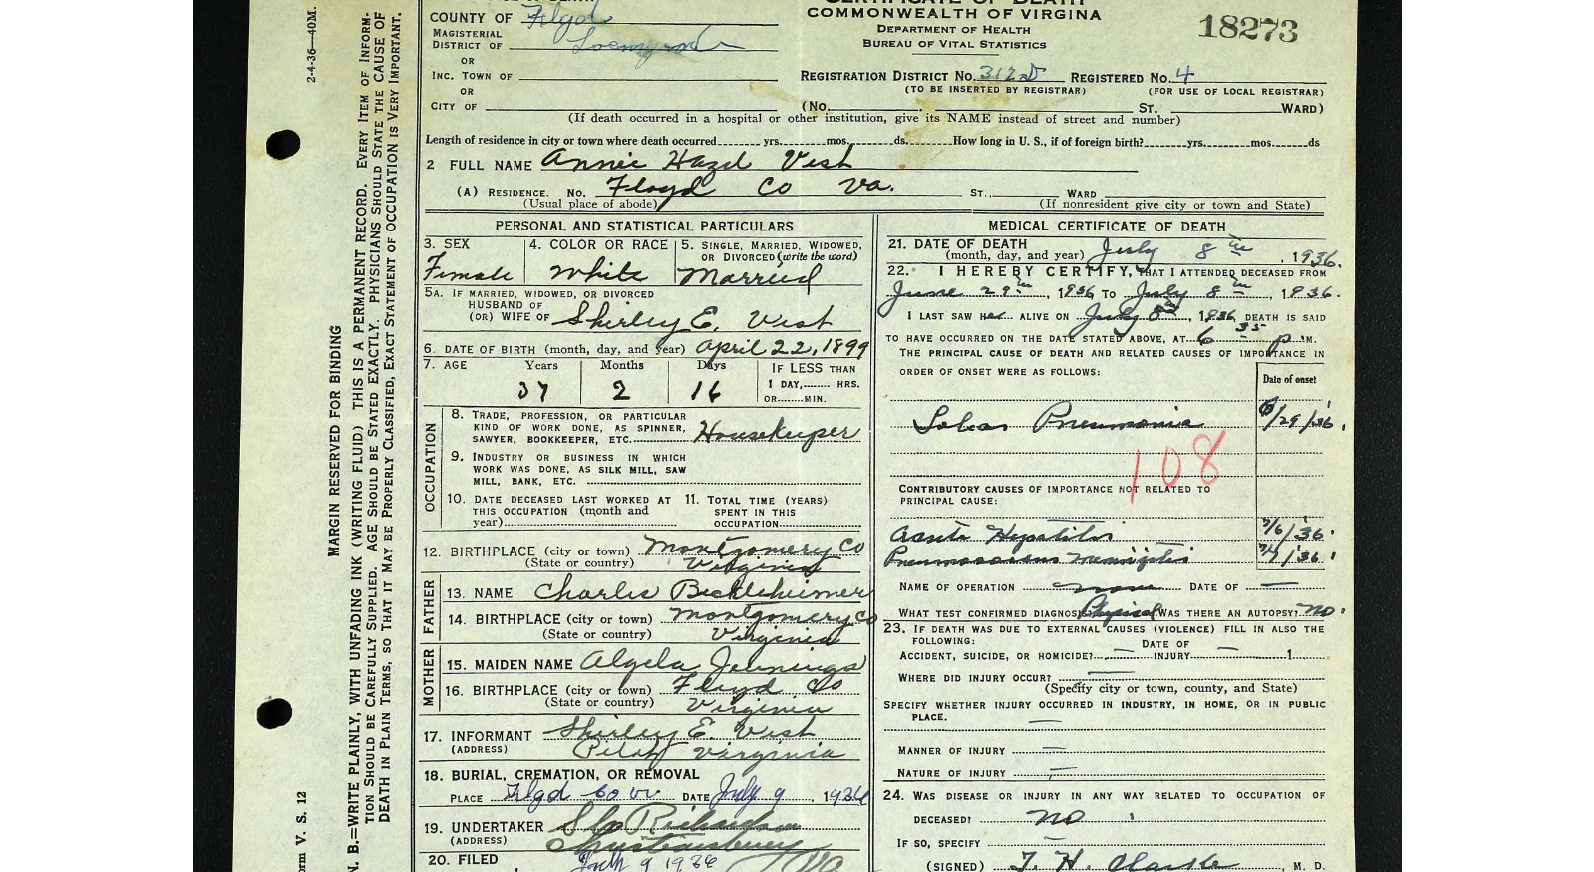 CERTIFICATE OF DEATH
COUNTY OF Floyd
COMMONWEALTH OF VIRGINIA
18273
MAGISTERIAL
DISTRICT OF
DEPARTMENT OF HEALTH
BUREAU OF VITAL STATISTICS
OR
INC. TOWN OF
REGISTRATION DISTRICT No. REGISTERED No. 4
OR
(TO BE INSERTED BY REGISTRAR) (FOR USE OF LOCAL REGISTRAR)
CITY OF (No. ST. WARD)
(If death occurred in a hospital or other institution, give its NAME instead of street and number)
Length of residence in city or town where death occurred yrs. mos. ds. How long in U. S., if of foreign birth? yrs. mos. ds
2 FULL NAME Annie Hazel Vest
(A) RESIDENCE. No. Floyd Co Va. ST., WARD
(Usual place of abode) (If nonresident give city or town and State)
PERSONAL AND STATISTICAL PARTICULARS
3. SEX 4. COLOR OR RACE 5. SINGLE, MARRIED, WIDOWED,
OR DIVORCED (write the word)
Female White Married
5A. IF MARRIED, WIDOWED, OR DIVORCED
HUSBAND OF
(OR) WIFE OF Shirley E. Vest
6. DATE OF BIRTH (month, day, and year) April 22, 1899
7. AGE Years Months Days IF LESS THAN
1 DAY, HRS.
37 2 16 OR MIN.
OCCUPATION
8. TRADE, PROFESSION, OR PARTICULAR
KIND OF WORK DONE, AS SPINNER,
SAWYER, BOOKKEEPER, ETC. Housekeeper
9. INDUSTRY OR BUSINESS IN WHICH
WORK WAS DONE, AS SILK MILL, SAW
MILL, BANK, ETC.
10. DATE DECEASED LAST WORKED AT 11. TOTAL TIME (YEARS)
THIS OCCUPATION (month and SPENT IN THIS
year) OCCUPATION
12. BIRTHPLACE (city or town) Montgomery Co
(State or country) Virginia
FATHER
13. NAME Charlie Beckleheimer
14. BIRTHPLACE (city or town) Montgomery Co
(State or country) Virginia
MOTHER
15. MAIDEN NAME Jennings
16. BIRTHPLACE (city or town) Floyd Co
(State or country) Virginia
17. INFORMANT Shirley E. Vest
(ADDRESS) Pilot Virginia
18. BURIAL, CREMATION, OR REMOVAL
PLACE Floyd Co Va DATE July 9, 1936
19. UNDERTAKER Richardson
(ADDRESS) Christiansburg Va
20. FILED July 9 1936
MEDICAL CERTIFICATE OF DEATH
21. DATE OF DEATH
(month, day, and year) July 8th, 1936.
22. I HEREBY CERTIFY, THAT I ATTENDED DECEASED FROM
June 29th, 1936 TO July 8th, 1936.
I LAST SAW Her ALIVE ON July 8th, 1936, DEATH IS SAID
TO HAVE OCCURRED ON THE DATE STATED ABOVE, AT 6 35 P M.
THE PRINCIPAL CAUSE OF DEATH AND RELATED CAUSES OF IMPORTANCE IN
ORDER OF ONSET WERE AS FOLLOWS: Date of onset
Lobar Pneumonia 6/29/36.
108
CONTRIBUTORY CAUSES OF IMPORTANCE NOT RELATED TO
PRINCIPAL CAUSE:
Acute Hepatitis 7/6/36.
Pneumococcus Meningitis 7/7/36.
NAME OF OPERATION none DATE OF —
WHAT TEST CONFIRMED DIAGNOSIS? Physical WAS THERE AN AUTOPSY? no.
23. IF DEATH WAS DUE TO EXTERNAL CAUSES (VIOLENCE) FILL IN ALSO THE
FOLLOWING:
DATE OF
ACCIDENT, SUICIDE, OR HOMICIDE? — INJURY — 1
WHERE DID INJURY OCCUR? —
(Specify city or town, county, and State)
SPECIFY WHETHER INJURY OCCURRED IN INDUSTRY, IN HOME, OR IN PUBLIC
PLACE. —
MANNER OF INJURY —
NATURE OF INJURY —
24. WAS DISEASE OR INJURY IN ANY WAY RELATED TO OCCUPATION OF
DECEASED? no
IF SO, SPECIFY —
(SIGNED) T. H. Clarke, M. D.
2-4-36—40M.
MARGIN RESERVED FOR BINDING
N. B.=WRITE PLAINLY, WITH UNFADING INK (WRITING FLUID) THIS IS A PERMANENT RECORD. EVERY ITEM OF INFORM-
TION SHOULD BE CAREFULLY SUPPLIED. AGE SHOULD BE STATED EXACTLY. PHYSICIANS SHOULD STATE THE CAUSE OF
DEATH IN PLAIN TERMS, SO THAT IT MAY BE PROPERLY CLASSIFIED, EXACT STATEMENT OF OCCUPATION IS VERY IMPORTANT.
orm V. S. 12